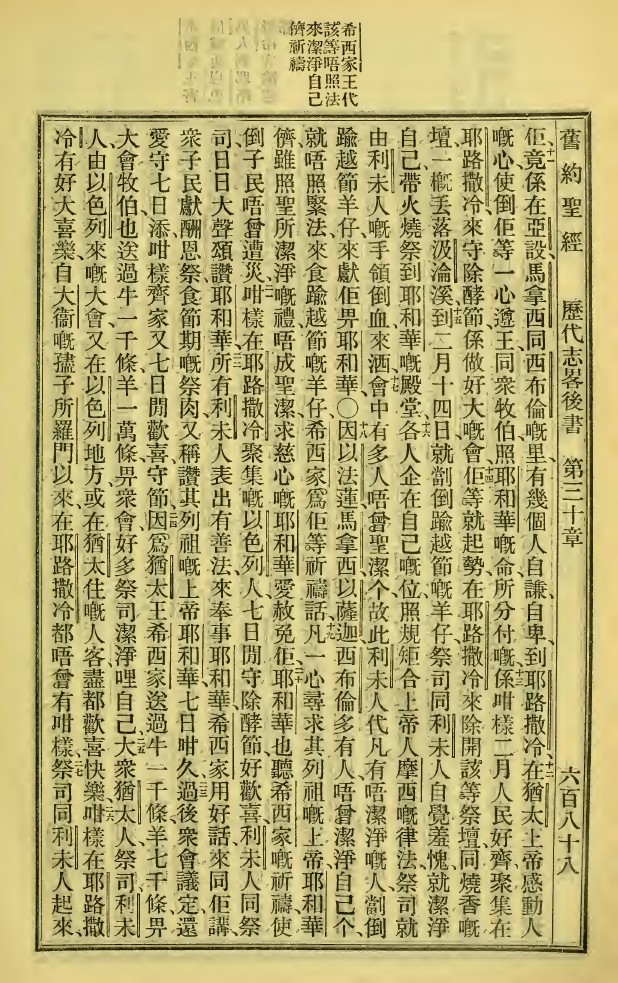 希西家王代
該等唔照法
來潔淨自己
儕祈禱
舊約聖經 歷代志畧後書 第三十章 六百八十八
佢、竟係在亞設馬拿西同西布倫嘅里有幾個人自謙自卑、到耶路撒冷、在猶太上帝感動人
嘅心使倒佢等一心遵王同衆牧伯照耶和華嘅命所分付嘅係咁樣二月人民好齊聚集在
耶路撒冷來守除酵節係做好大嘅會、佢等就起勢在耶路撒冷來除開該等祭壇同燒香嘅
壇、一概丟落汲淪溪、到二月十四日就劏倒踰越節嘅羊仔祭司同利未人自覺羞愧、就潔淨
自己、帶火燒祭到耶和華嘅殿堂、各人企在自己嘅位、照規矩合上帝人摩西嘅律法、祭司就
由利未人嘅手領倒血來洒、會中有多人唔曾聖潔个、故此利未人代凡有唔潔淨嘅人劏倒
踰越節羊仔來獻佢畀耶和華〇因以法蓮馬拿西以薩迦西布倫多有人唔曾潔淨自己、个
就唔照緊法、來食踰越節嘅羊仔、希西家爲佢等祈禱話、凡一心尋求其列祖嘅上帝耶和華
儕、雖照聖所潔淨嘅禮唔成聖潔、求慈心嘅耶和華愛赦免佢、耶和華也聽希西家嘅祈禱、使
倒子民唔曾遭災、咁樣在耶路撒冷聚集嘅以色列人七日閒守除酵節好歡喜、利未人同祭
司日日大聲頌讚耶和華、所有利未人表出有善法來奉事耶和華、希西家用好話來同佢講、
衆子民獻酬恩祭食節期嘅祭肉又稱讚其列祖嘅上帝耶和華七日咁久、過後衆會議定還
愛守七日添咁樣齊家又七日閒歡喜守節、因爲猶太王希西家送過牛一千條羊七千條畀
大會、牧伯也送過牛一千條羊一萬條畀衆會、好多祭司潔淨哩自己、大衆猶太人祭司利未
人、由以色列來嘅大會、又在以色列地方或在猶太住嘅人客盡都歡喜快樂、咁樣在耶路撒
冷有好大喜樂、自大衛嘅孻子所羅門以來、在耶路撒冷都唔曾有咁樣、祭司同利未人起來、